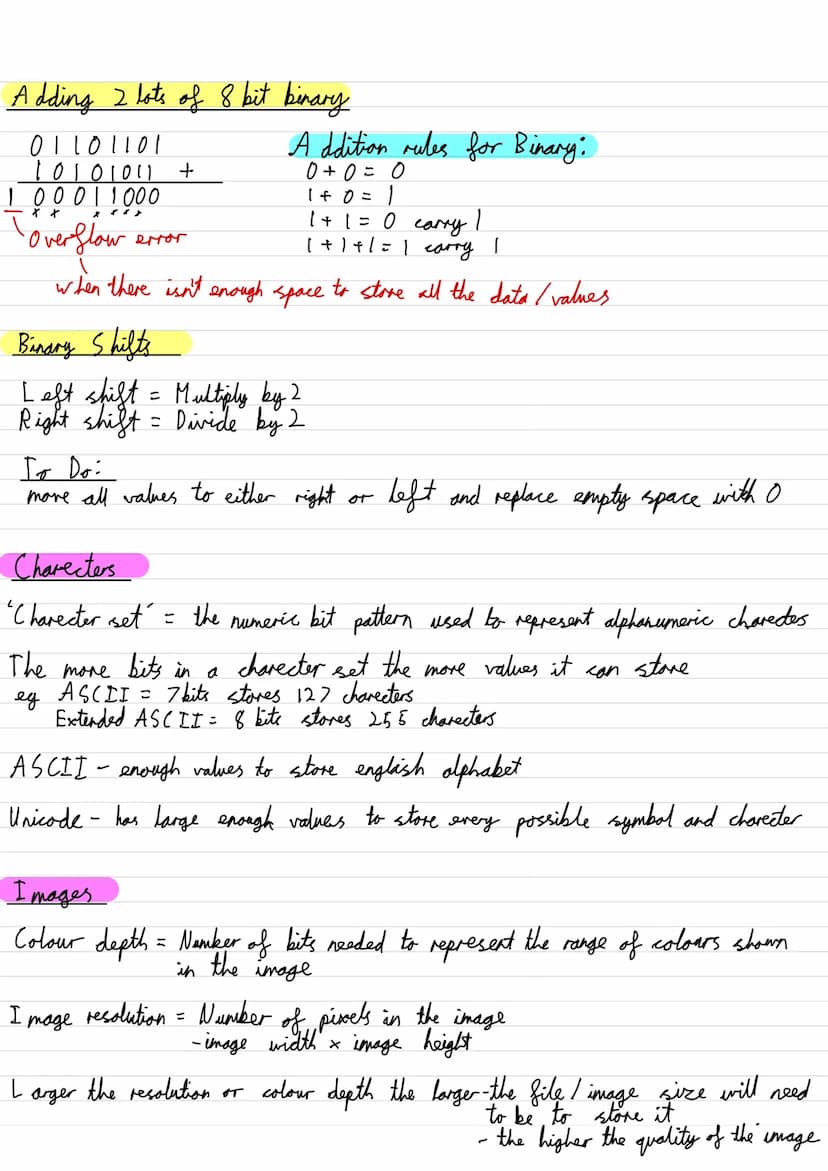 Adding 2 lots of 8 bit binary
01101101
10101011 +
1 00011000
Overflow error
when there isn't enough space to store all the data/values
Addition rules for Binary:
0 + 0 = 0
1 + 0 = 1
1 + 1 = 0 carry 1
1 + 1 + 1 = 1 carry 1
Binary Shifts
Left shift = Multiply by 2
Right shift = Divide by 2
To Do:
move all values to either right or left and replace empty space with 0
Charecters
'Charecter set' = the numeric bit pattern used to represent alphanumeric charectes
The more bits in a charecter set the more values it can store
eg ASCII = 7 bits stores 127 charecters
Extended ASCII = 8 bits stores 255 charecters
ASCII - enough values to store english alphabet
Unicode - has large enough values to store every possible symbol and charecter
Images
Colour depth = Number of bits needed to represent the range of colours shown
in the image
Image resolution = Number of pixels in the image
- image width x image height
Larger the resolution or colour depth the larger - the file / image size will need
to be to store it
- the higher the quality of the image